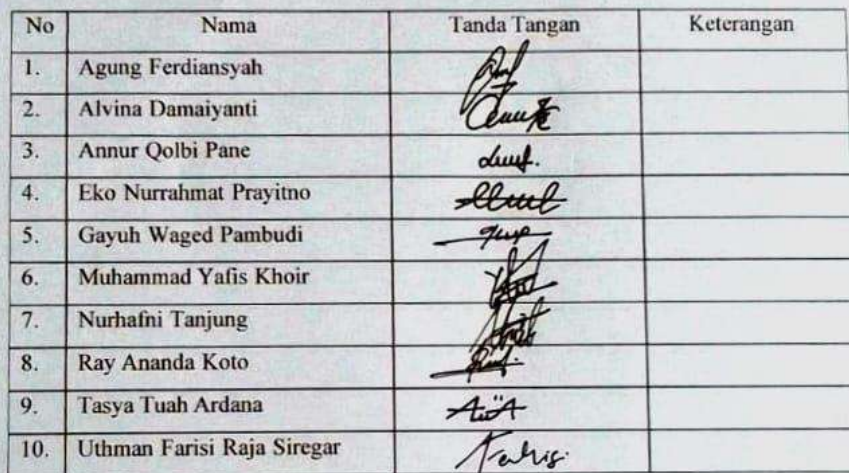 No Nama Tanda Tangan Keterangan
1. Agung Ferdiansyah
2. Alvina Damaiyanti
3. Annur Qolbi Pane
4. Eko Nurrahmat Prayitno
5. Gayuh Waged Pambudi
6. Muhammad Yafis Khoir
7. Nurhafni Tanjung
8. Ray Ananda Koto
9. Tasya Tuah Ardana
10. Uthman Farisi Raja Siregar